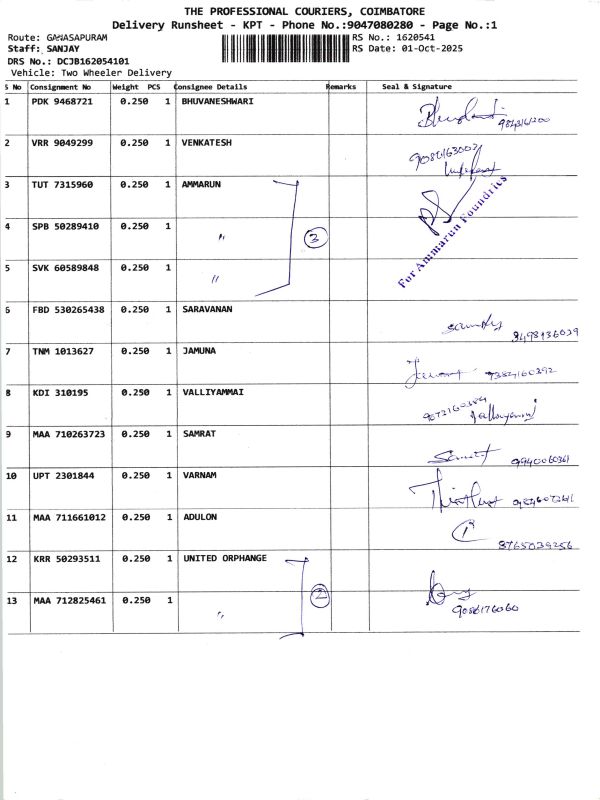 THE PROFESSIONAL COURIERS, COIMBATORE
Delivery Runsheet - KPT - Phone No.:9047080280 - Page No.:1
Route: GANASAPURAM
RS No.: 1620541
Staff: SANJAY
RS Date: 01-Oct-2025
DRS No.: DCJB162054101
Vehicle: Two Wheeler Delivery
S No Consignment No Weight PCS Consignee Details Remarks Seal & Signature
1 PDK 9468721 0.250 1 BHUVANESHWARI
2 VRR 9049299 0.250 1 VENKATESH
3 TUT 7315960 0.250 1 AMMARUN
4 SPB 50289410 0.250 1 " 3
For Ammarun Foundries
5 SVK 60589848 0.250 1 "
6 FBD 530265438 0.250 1 SARAVANAN
7 TNM 1013627 0.250 1 JAMUNA
8 KDI 310195 0.250 1 VALLIYAMMAI
9 MAA 710263723 0.250 1 SAMRAT
10 UPT 2301844 0.250 1 VARNAM
11 MAA 711661012 0.250 1 ADULON
8765039256
12 KRR 50293511 0.250 1 UNITED ORPHANGE
2
13 MAA 712825461 0.250 1 "
9086176060